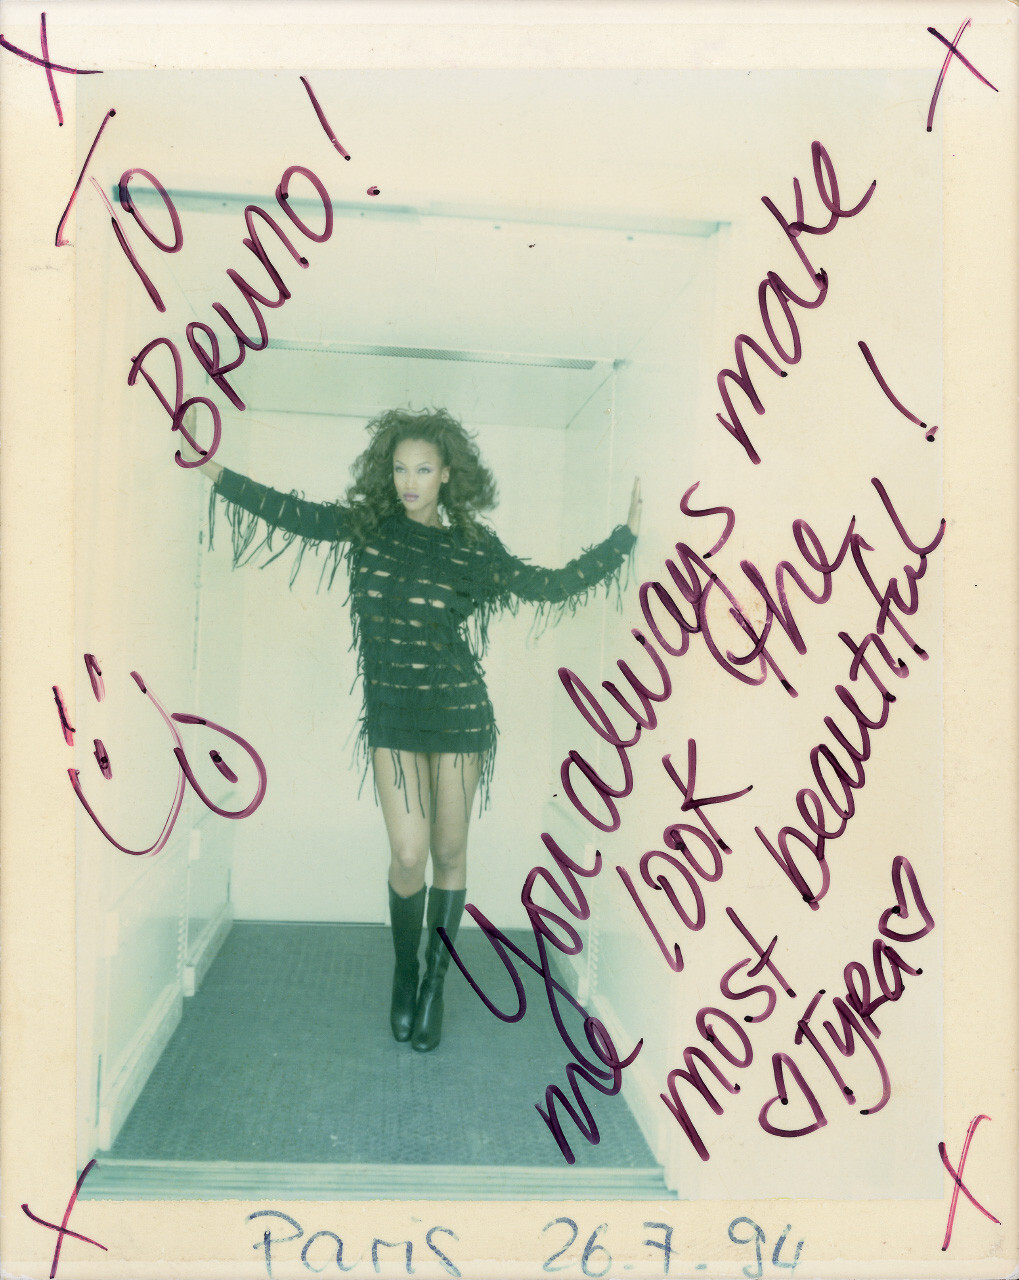 TO
BRUNO!
You always make
me look the
most beautiful!
♡Tyra♡
Paris 26.7.94